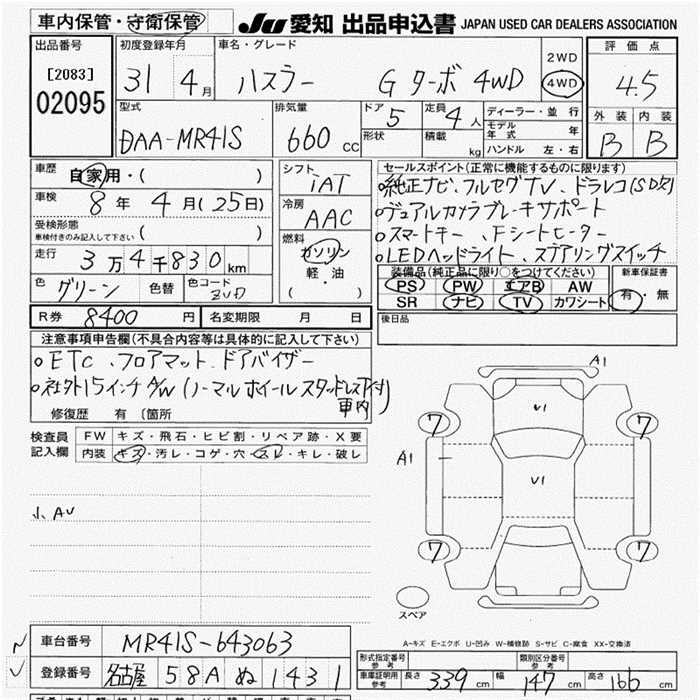 車内保管・守衛保管
JU 愛知 出品申込書 JAPAN USED CAR DEALERS ASSOCIATION
出品番号
[2083]
02095
初度登録年月
31 4月
車名・グレード
ハスラー Gターボ 4WD
2WD
4WD
評価点
4.5
外装 内装
B B
型式
DAA-MR41S
排気量
660cc
ドア
5
定員
4人
形状
積載
kg
ディーラー・並行
モデル年式 年
ハンドル 左・右
車歴
自家用・( )
車検
8年 4月(25日)
受検形態
車検付きのみ記入して下さい ( )
走行
3万4千830km
色
グリーン
色替
色コード
ZVD
シフト
iAT
冷房
AAC
燃料
ガソリン
軽・油
( ・ )
セールスポイント(正常に機能するものに限ります)
○純正ナビ、フルセグTV、ドラレコ(SD欠)
○デュアルカメラブレーキサポート
○スマートキー、Fシートヒーター
○LEDヘッドライト、ステアリングスイッチ
装備品(純正品に限り○をつけてください)
PS PW エアB AW
SR ナビ TV カワシート
新車保証書
有・無
R券 8400円
名変期限 月 日
後日品
注意事項申告欄(不具合内容等は具体的に記入して下さい)
○ETC、フロアマット、ドアバイザー
○社外15インチA/W(ノーマルホイールスタッドレスタイヤ付)
車内
修復歴 有 〔箇所
検査員記入欄
FW キズ・飛石・ヒビ割・リペア跡・X要
内装 キズ・汚レ・コゲ・穴・スレ・キレ・破レ
小、AU
A1
U1
7 7
A1
U1
7 7
スペア
A-キズ E-エクボ U-凹み W-補修跡 S-サビ C-腐食 XX-交換済
車台番号
MR41S-643063
登録番号
名古屋 58A ぬ 1431
形式指定番号
参考
類別区分番号
参考
車庫証明用
参考
長さ 339cm 幅 147cm 高さ 166cm